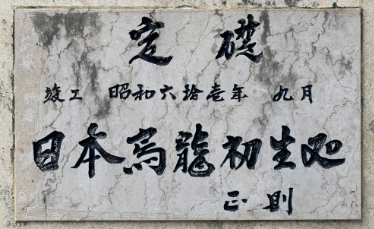 定礎
竣工 昭和六拾壱年 九月
日本烏龍初生処
正則